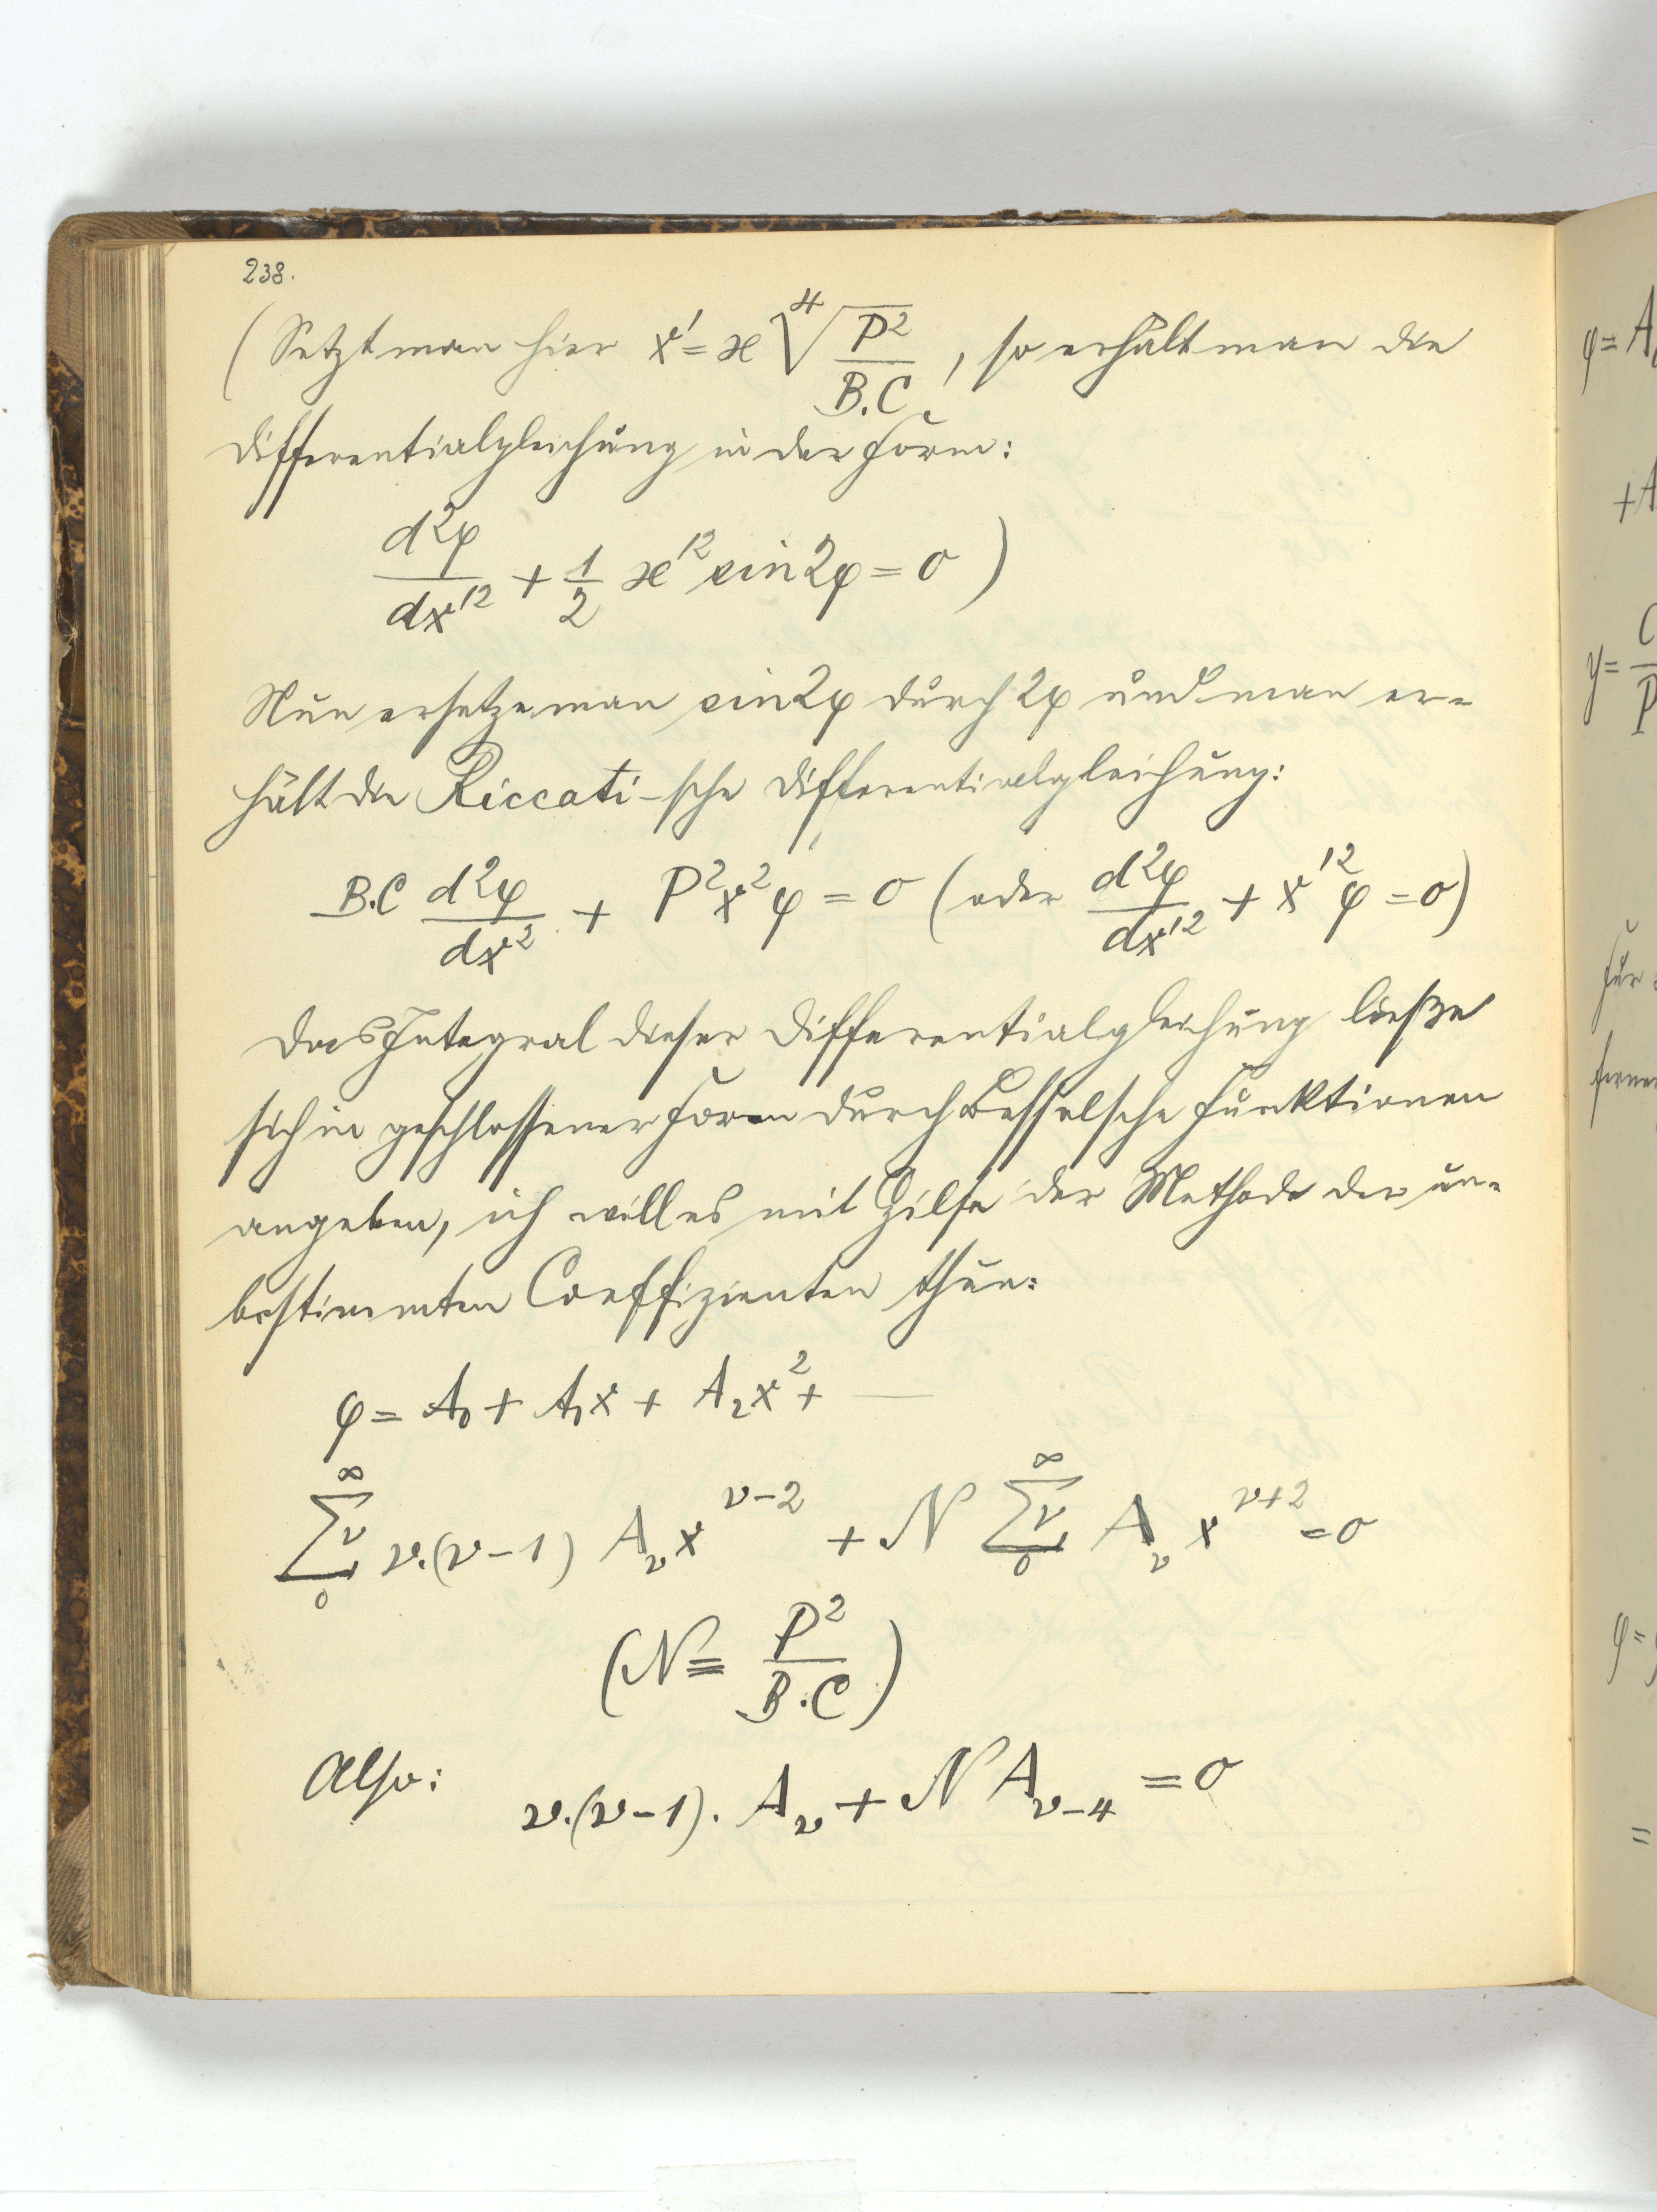 238.
(Setzt man hier x' = x ∜(P²/B.C), so erhält man die
Differentialgleichung in der Form:
d²φ/dx'² + 1/2 x'² sin2φ = 0 )
Nun ersetze man sin2φ durch 2φ und man er=
hält die Riccati-sche Differentialgleichung:
B.C d²φ/dx² + P²x²φ = 0 (oder d²φ/dx'² + x'²φ = 0)
Das Integral dieser Differentialgleichung ließe
sich in geschlossener Form durch Besselsche Funktionen
angeben, ich will es mit Hilfe der Methode der un=
bestimmten Coeffizienten thun:
φ = A₀ + A₁x + A₂x² + —
∑₀^∞ ν ν.(ν-1) A_ν x^(ν-2) + N ∑₀^∞ ν A_ν x^(ν+2) = 0
(N = P²/B.C)
Also: ν.(ν-1). A_ν + N A_(ν-4) = 0
φ = A
+A
y = C/P
Für
ferner
φ =
=